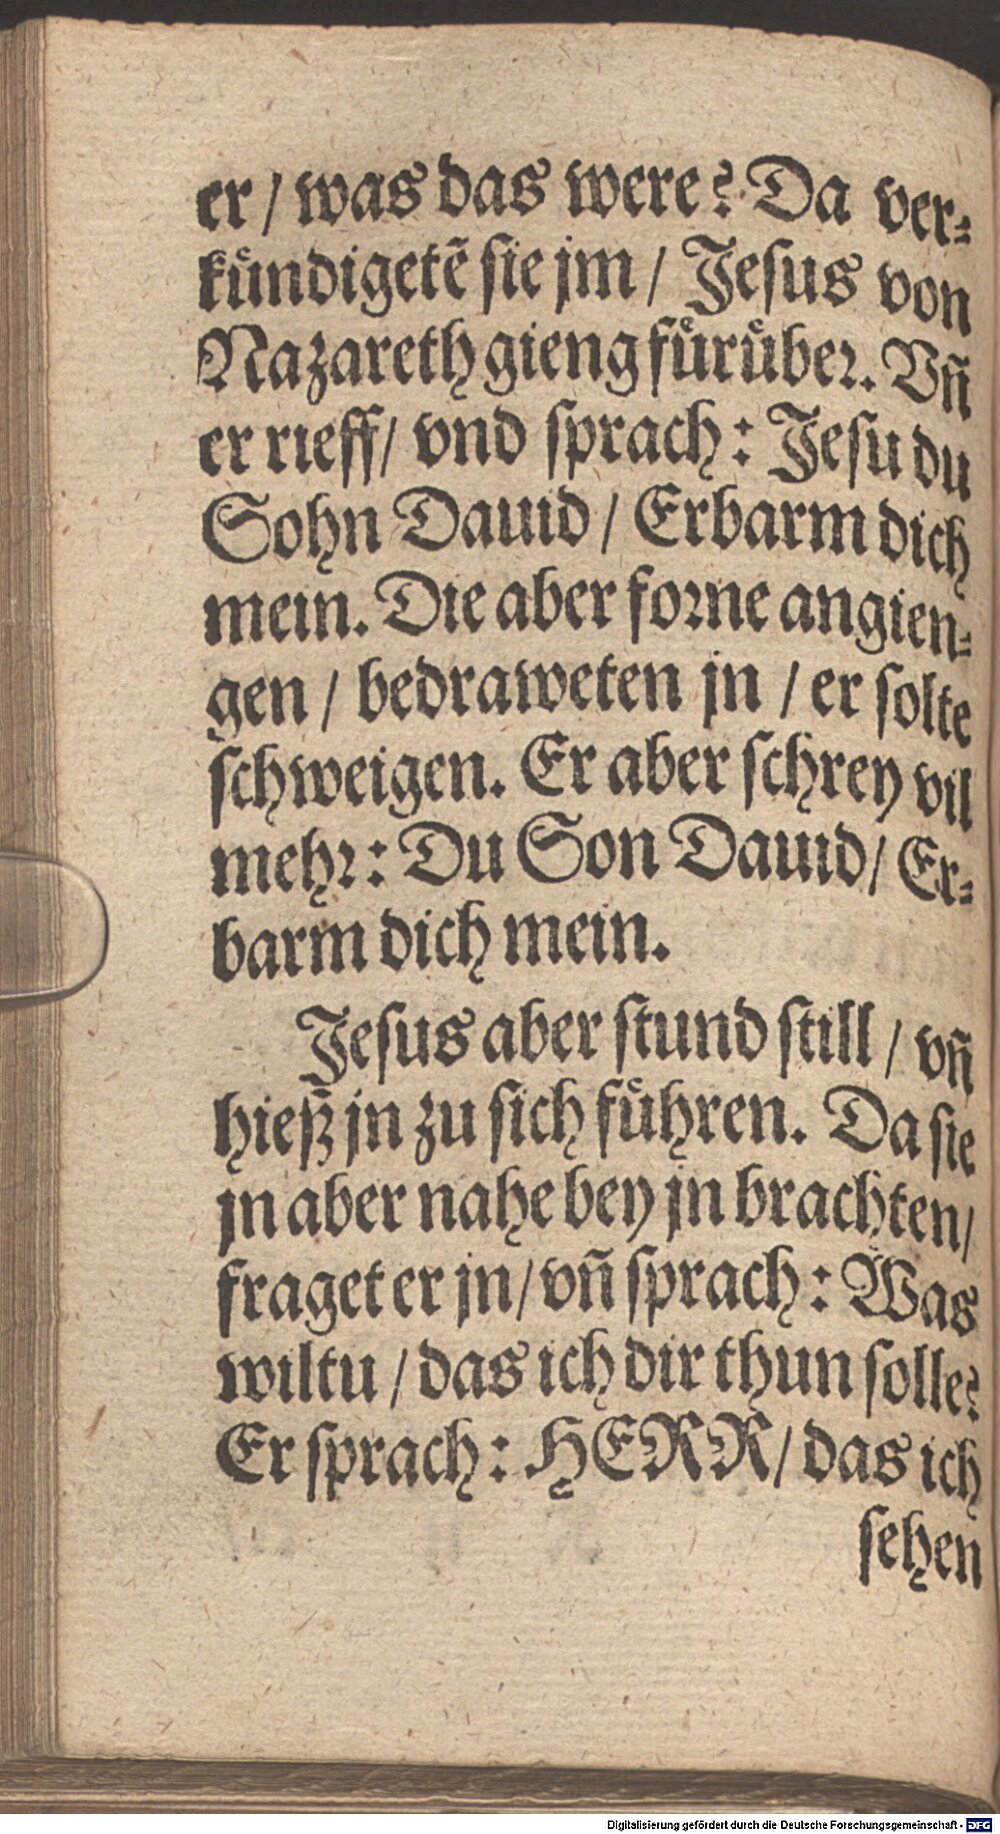 er / was das were? Da ver⸗
kuͤndigetẽ sie jm / Jesus von
Nazareth gieng fuͤruͤber. Vñ
er rieff / vnd sprach: Jesu du
Sohn Dauid / Erbarm dich
mein. Die aber forne angien⸗
gen / bedraweten jn / er solte
schweigen. Er aber schrey vil
mehr: Du Son Dauid / Er⸗
barm dich mein.
Jesus aber stund still / vñ
hieß jn zu sich fuͤhren. Da sie
jn aber nahe bey jn brachten /
fraget er jn / vñ sprach: Was
wiltu / das ich dir thun solle?
Er sprach: HERR / das ich
sehen
Digitalisierung gefördert durch die Deutsche Forschungsgemeinschaft - DFG